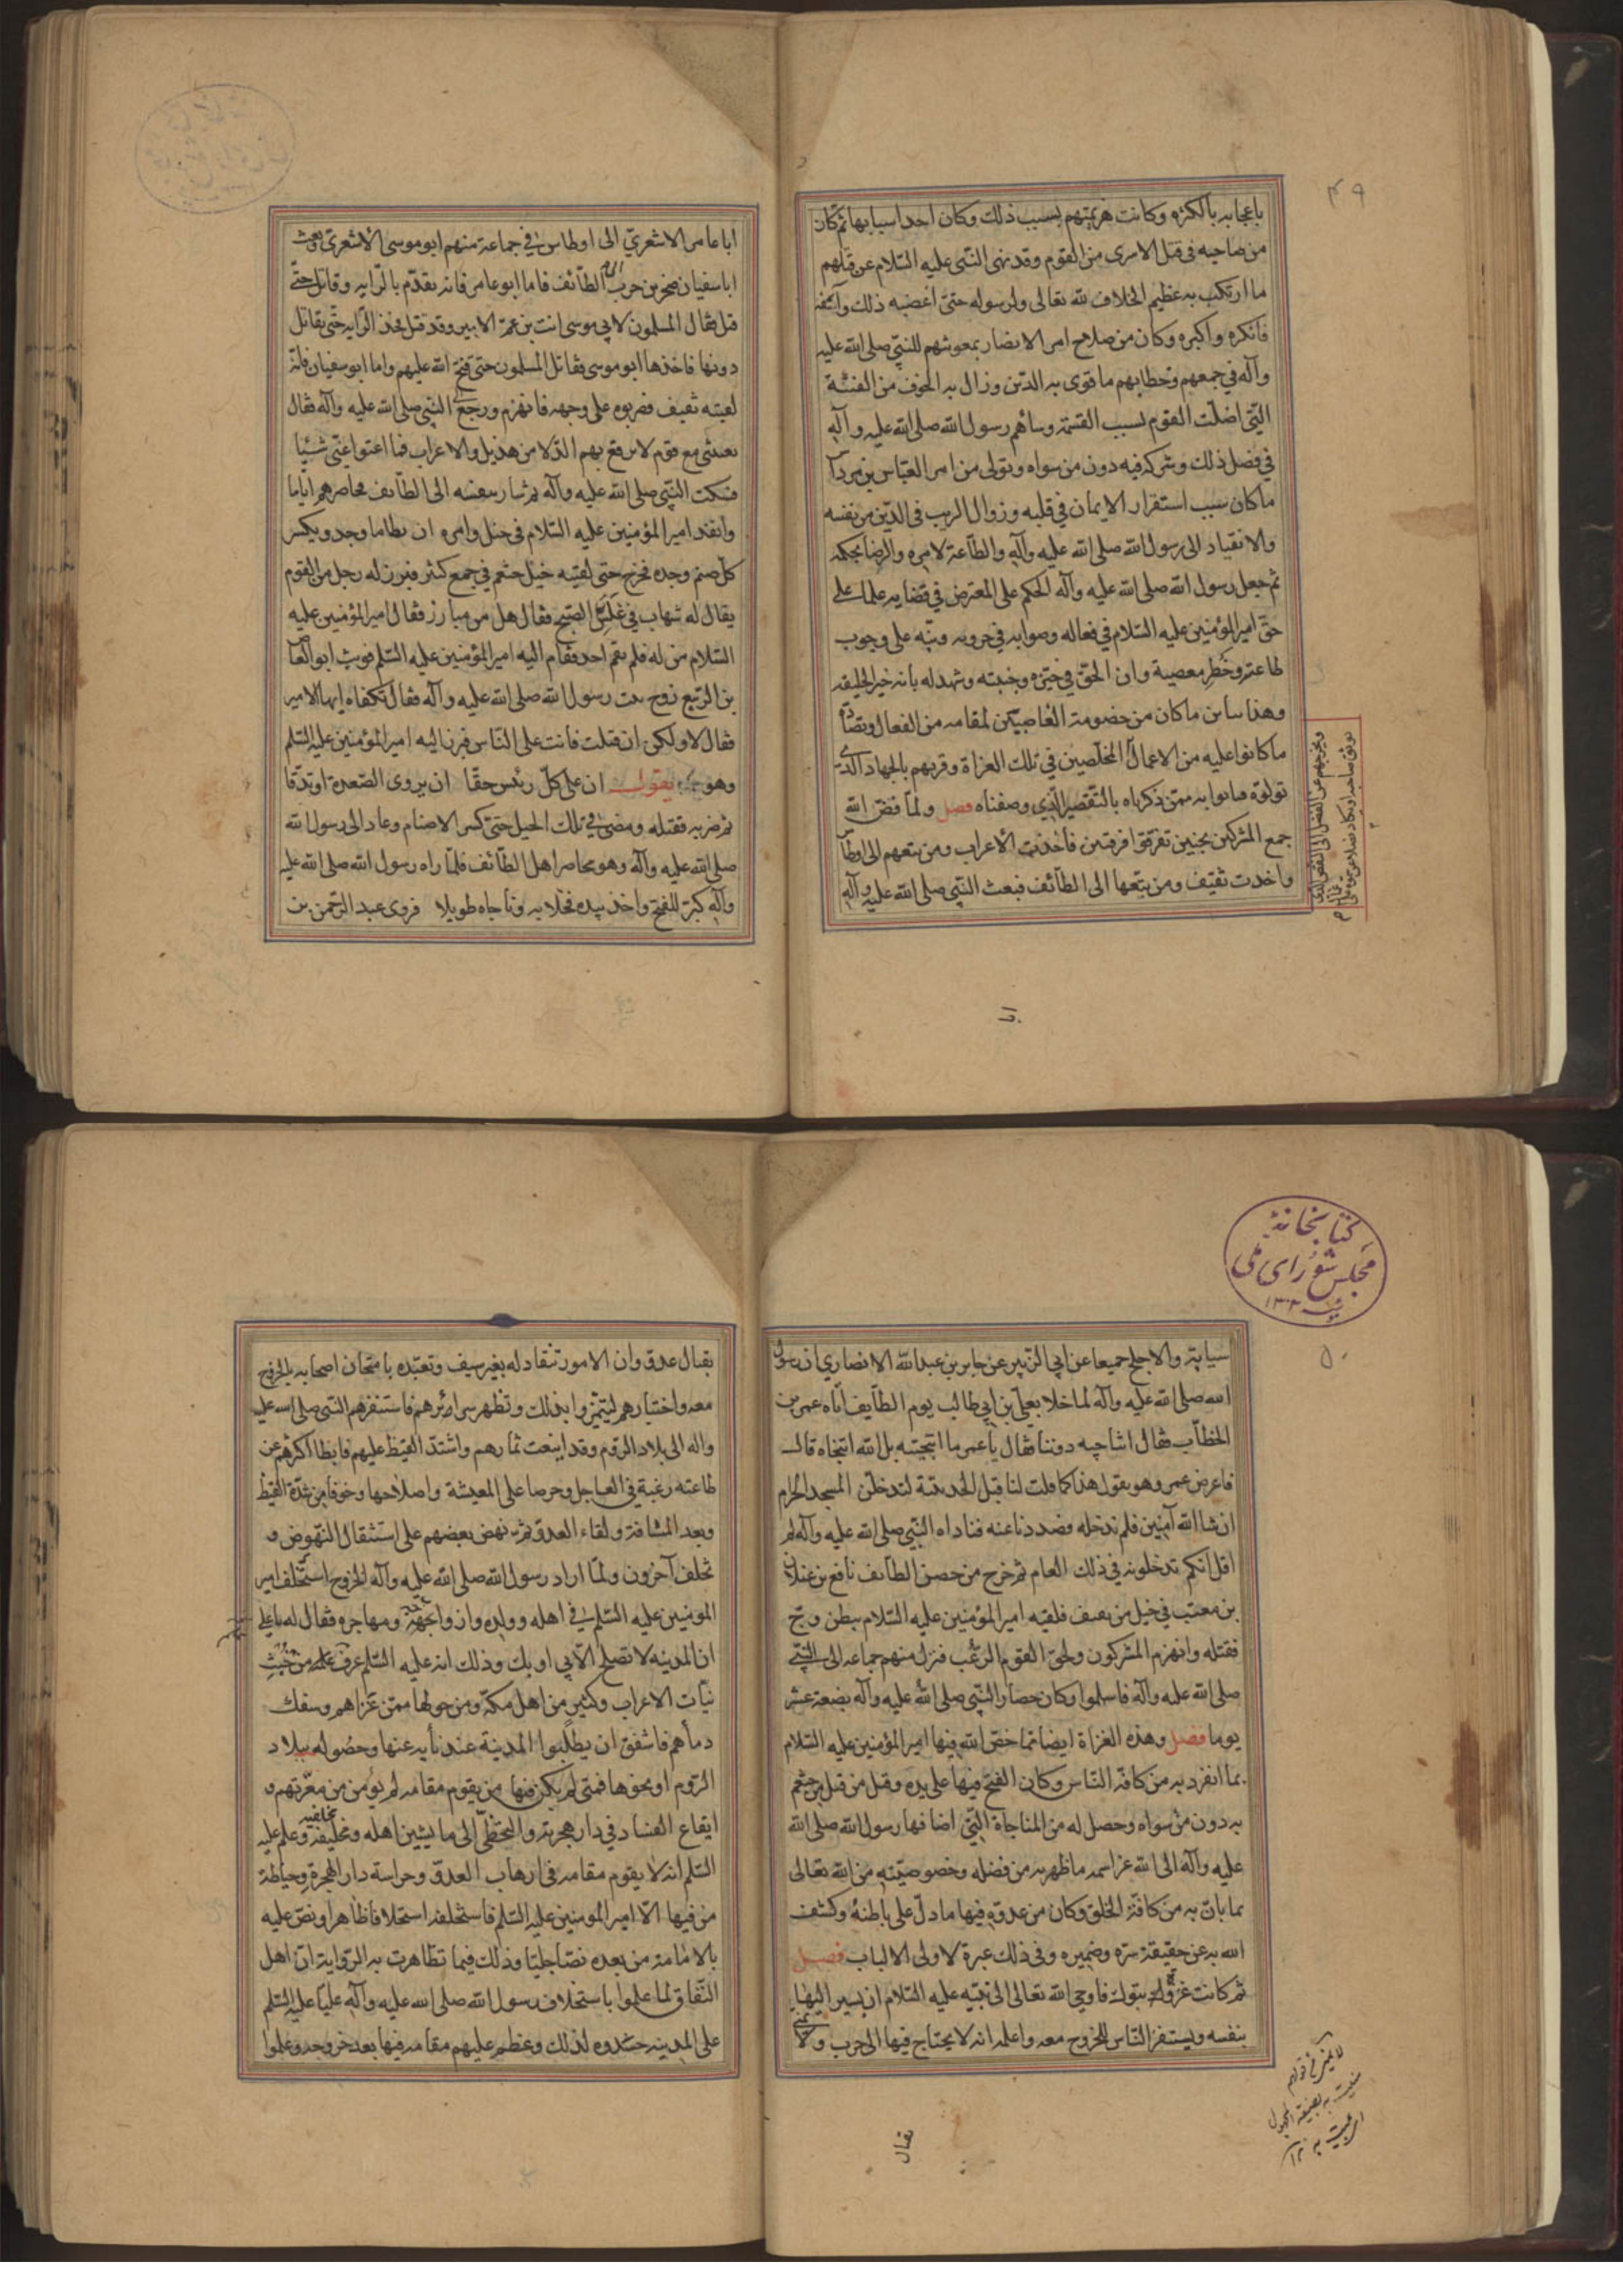 ۴۹
باعجابه بالكثرة وكانت هزيمتهم بسبب ذلك وكان احد اسبابها ثم كان
من صاحبه في قتل الاسرى من القوم وقد نهى النبى عليه السّلام عن قتلهم
ما ارتكب به عظيم الخلاف لله تعالى ولرسوله حتى اغضبه ذلك وآسفه
فانكره واكبره وكان من صلاح امر الانصار بمعونتهم للنبي صلى الله عليه
وآله في جمعهم وخطابهم ما قوى به الدين وزال به الخوف من الفتنة
التى اضلّت القوم بسبب القسمة وساهم رسول الله صلى الله عليه وآله
في فضل ذلك وشركه فيه دون من سواه وتولى من امر العباس بن مردآ
ما كان سبب استقرار الايمان في قلبه وزوال الريب في الدّين من نفسه
والانقياد الى رسول الله صلى الله عليه وآله والطّاعة لامره والرضا بحكمه
ثم جعل رسول الله صلى الله عليه وآله الحكم على المعترض في قضايه علما على
حق امير المؤمنين عليه السّلام في فعاله وصوابه في حروبه ونبّه على وجوب
طاعته وخطر معصية وان الحقّ في حيّزه وجنبته وشهد له بانه خير الخليقه
وهذا يباين ما كان من خصومة الغاصبين لمقامه من الفعال ويضادّ
ما كانوا عليه من الاعمال المخلصين في تلك الغزاة وقربهم بالجهاد الذي
تولوه فبانوا به ممن ذكرناه بالتّقصير الّذي وصفناه فصل ولمّا فضّ الله
جمع المشركين بحنين تفرّقوا فرقتين فأخذت الأعراب ومن تبعهم الى اوطآ
واخذت ثقيف ومن تبعها الى الطّائف فبعث النبى صلى الله عليه وآله
ابا
ابا عامر الاشعريّ الى اوطاس في جماعة منهم ابو موسى الاشعرى وبعث
ابا سفيان صخر بن حرب الى الطّائف فاما ابو عامر فانه تقدّم بالرّايه وقاتل حتّى
قتل فقال المسلمون لابي موسى انت بن عمّ الامير وقد قتل فخذ الرّايه حتّى نقاتل
دونها فاخذها ابو موسى فقاتل المسلمون حتى فتح الله عليهم واما ابو سفيان فانّه
لقيته ثقيف فضربوه على وجهه فانهزم ورجع الى النبى صلى الله عليه وآله فقال
بعثتني مع قوم لا يرقع بهم الدّلا من هذيل والاعراب فما اغنوا عنّي شيئا
فسكت النّبي صلى الله عليه وآله ثم سار بنفسه الى الطّائف فحاصرهم ايّاما
وانفذ امير المؤمنين عليه السّلام في خيل وامره ان يطا ما وجد ويكسر
كل صنم وجده فخرج حتى لقيته خيل خثعم في جمع كثير فبرز له رجل من القوم
يقال له شهاب في غلس الصّبح فقال هل من مبارز فقال امير المؤمنين عليه
السّلام من له فلم يقم احد فقام اليه امير المؤمنين عليه السّلم فوثب ابو العاص
بن الرّبيع زوج بنت رسول الله صلى الله عليه وآله فقال تكفاه ايها الامير
فقال لا ولكن ان قتلت فانت على النّاس فبرز اليه امير المؤمنين عليه السّلم
وهو يقول ان على كلّ رئيس حقّا ان يروى الصّعدة او تدقّا
ثم ضربه فقتله ومضى في تلك الخيل حتى كسر الاصنام وعاد الى رسول الله
صلى الله عليه وآله وهو محاصر اهل الطّائف فلمّا راه رسول الله صلى الله عليه
وآله كبّر للفتح واخذ بيده فخلا به وناجاه طويلا فروى عبد الرّحمن بن
كتابخانهٔ
مجلس شوراى ملى
۵۰
سيابة والاجلح جميعا عن ابي الزّبير عن جابر بن عبد الله الانصاري ان رسول
الله صلى الله عليه وآله لما خلا بعلى بن ابي طالب يوم الطّايف اتاه عمر بن
الخطّاب فقال اتناجيه دوننا فقال يا عمر ما انتجيته بل الله انتجاه قال
فاعرض عمر وهو يقول هذا كما قلت لنا قبل الحديبية لتدخلنّ المسجد الحرام
ان شا الله آمنين فلم ندخله وصددنا عنه فناداه النبّى صلى الله عليه وآله لم
اقل انكم تدخلونه في ذلك العام ثم خرج من حصن الطائف نافع بن غيلان
بن معتب في خيل من ثقيف فلقيه امير المؤمنين عليه السّلام ببطن وجّ
فقتله وانهزم المشركون ولحق القوم الرّعب فنزل منهم جماعه الى النبّي
صلى الله عليه وآله فاسلموا وكان حصار النبّي صلى الله عليه وآله بضعة عشر
يوما فصل وهذه الغزاة ايضا مما خصّ الله فيها امير المؤمنين عليه السّلام
بما انفرد به من كافّة النّاس وكان الفتح فيها على يده وقتل من قتل من خثعم
به دون من سواه وحصل له من المناجاة الّتي اضافها رسول الله صلى الله
عليه وآله الى الله عز اسمه ما ظهر به من فضله وخصوصيّته من الله تعالى
بما بان به من كافّة الخلق وكان من عدوّه فيها ما دلّ على باطنه وكشف
الله به عن حقيقة سرّه وضميره وفي ذلك عبرة لاولى الالباب فصل
ثم كانت غزوة تبوك فاوحى الله تعالى الى نبيّه عليه السّلام ان يسير اليها
بنفسه ويستنفر النّاس للخروج معه واعلمه انه لا يحتاج فيها الى حرب ولا يمنى
بقتال
بقتال عدوّ وان الامور تنقاد له بغير سيف وتعبّده بامتحان اصحابه بالخروج
معه واختيارهم ليتميّزوا بذلك وتظهر سرائرهم فاستنفرهم النبّى صلى الله عليه
واله الى بلاد الرّوم وقد اينعت ثمارهم واشتدّ القيظ عليهم فابطا اكثرهم عن
طاعته رغبة في العاجل وحرصا على المعيشة واصلاحها وخوفا من شدّة القيظ
وبعد المشافة ولقاء العدوّ ثم نهض بعضهم على استثقال النّهوض و
تخلف آخرون ولمّا اراد رسول الله صلى الله عليه وآله الخروج استخلف امير
المؤمنين عليه السّلم في اهله وولده وازواجه ومهاجره فقال له يا على
ان المدينه لا تصلح الّا بي او بك وذلك انه عليه السّلم عرف من خبث
نيّات الاعراب وكثير من اهل مكّة ومن حولها ممّن غزاهم وسفك
دمآهم فاشفق ان يطلبوا المدينة عند نأيه عنها وحصوله ببلاد
الرّوم او نحوها فمتى لم يكن فيها من يقوم مقامه لم يومن من معرّتهم و
ايقاع الفساد في دار هجرته والتخطّى الى ما يشين اهله ومخلّفيه وعلم عليه
السّلم انه لا يقوم مقامه في ارهاب العدوّ وحراسة دار الهجرة وحياطة
من فيها الّا امير المؤمنين عليه السّلم فاستخلفه استخلافا ظاهرا ونصّ عليه
بالامامة من بعده نصّا جليّا وذلك فيما تظاهرت به الرّواية انّ اهل
النّفاق لمّا علموا باستخلاف رسول الله صلى الله عليه وآله عليّا عليه السّلم
على المدينه حسدوه لذلك وعظم عليهم مقامه فيها بعد خروجه وعلموا